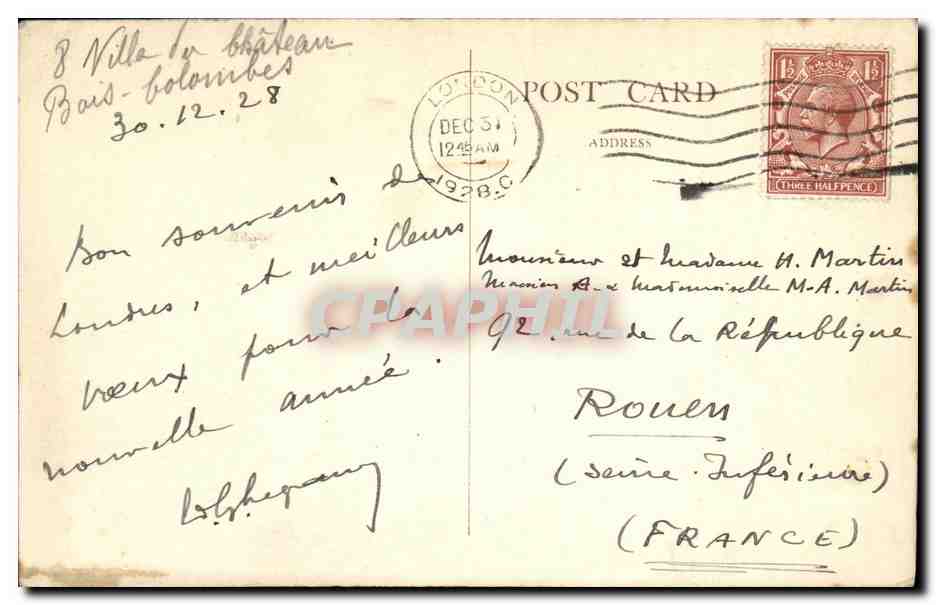 8 Villa du Château
Bois-Colombes
30.12.28
Bon souvenir de
Londres, et meilleurs
voeux pour la
nouvelle année.
LONDON
DEC 31
12.45 AM
1928.C
POST CARD
ADDRESS
1½ 1½
THREE HALFPENCE
Monsieur et Madame H. Martin
A. & Mademoiselle M-A. Martin
92, rue de la République
Rouen
(Seine-Inférieure)
(FRANCE)
CPAPHIL